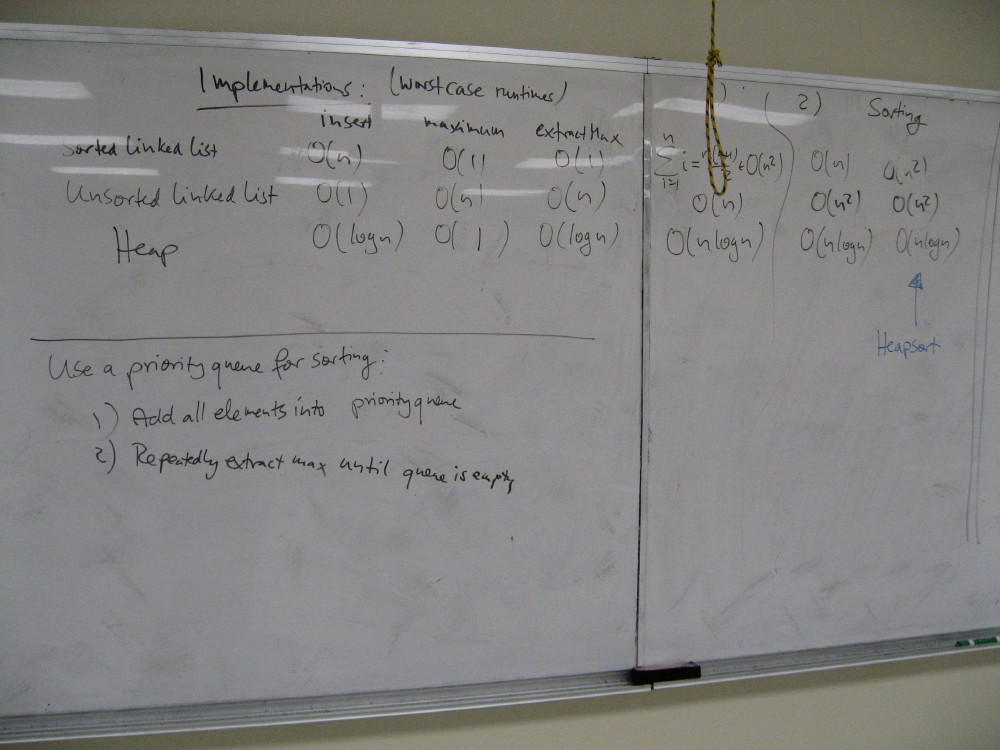 Implementations: (worst case runtimes)
insert maximum extractMax 1) 2) Sorting
Sorted linked list O(n) O(1) O(1) O(n) O(n²)
Unsorted linked list O(1) O(n) O(n) O(n) O(n²) O(n²)
Heap O(log n) O(1) O(log n) O(n log n) O(n log n) O(n log n)
Heapsort
Use a priority queue for sorting:
1) Add all elements into priority queue
2) Repeatedly extract max until queue is empty